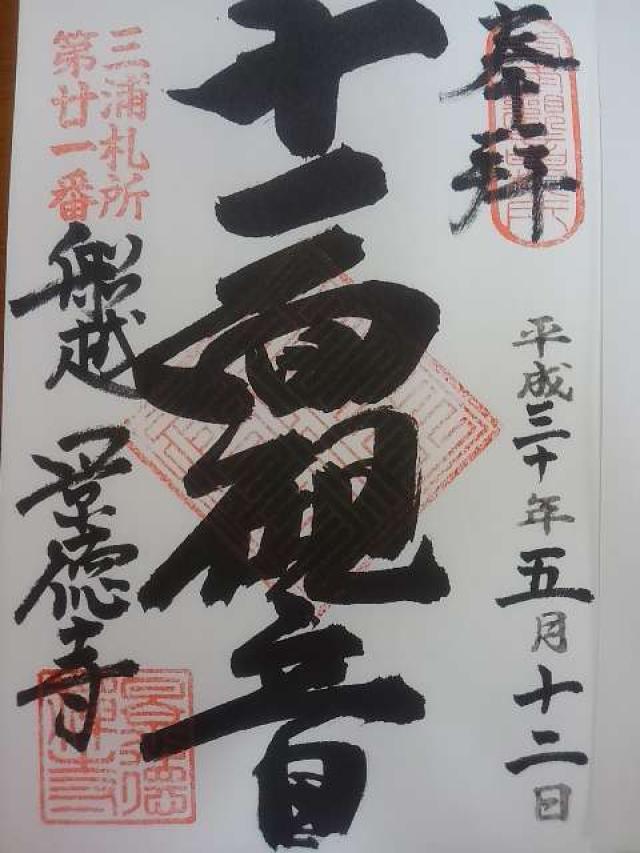 奉拝
平成三十年五月十二日
十一面観音
三浦札所
第廿一番
船越
景徳寺